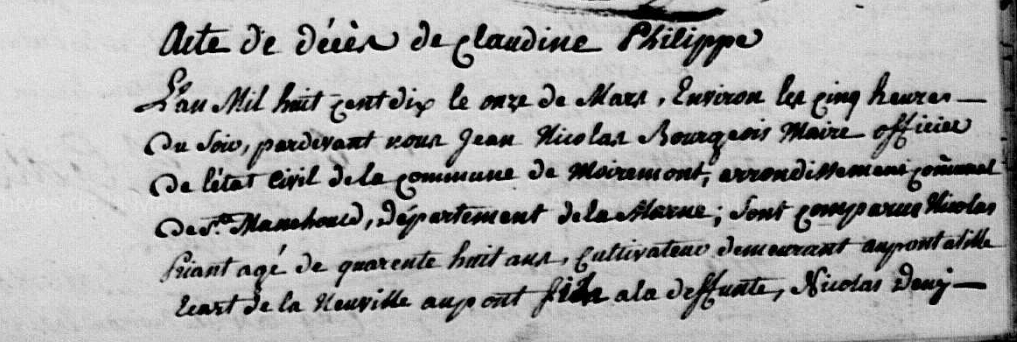 Acte de décès de Claudine Philippe
L'an Mil huit cent dix le onze de Mars, Environ les cinq heures —
Du Soir, pardevant nous Jean Nicolas Bourgeois Maire officier
De l'état Civil de la commune de Moiremont, arrondissement com̃unal
De Ste. Manehould, département de la Marne; sont comparus Nicolas
agé de quarente huit ans, Cultivateur demeurant au pont
Ecart de la Neuville au pont fils a la deffunte, Nicolas Deny —